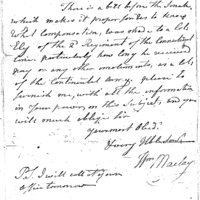 There is a bill before the Senate
which makes it proper for me to know
what compensation was made to a Col.
Ely of the 2d Regiment of the Connecticut
line, particularly how long he received
pay or any other emoluments, as a Col.
of the continental Army, please to
furnish me, with all the information
in your power, on this Subject, and you
will much oblige Sir
your most Obedt.
Wm Maclay
P.S. I will call at your
office tomorrow